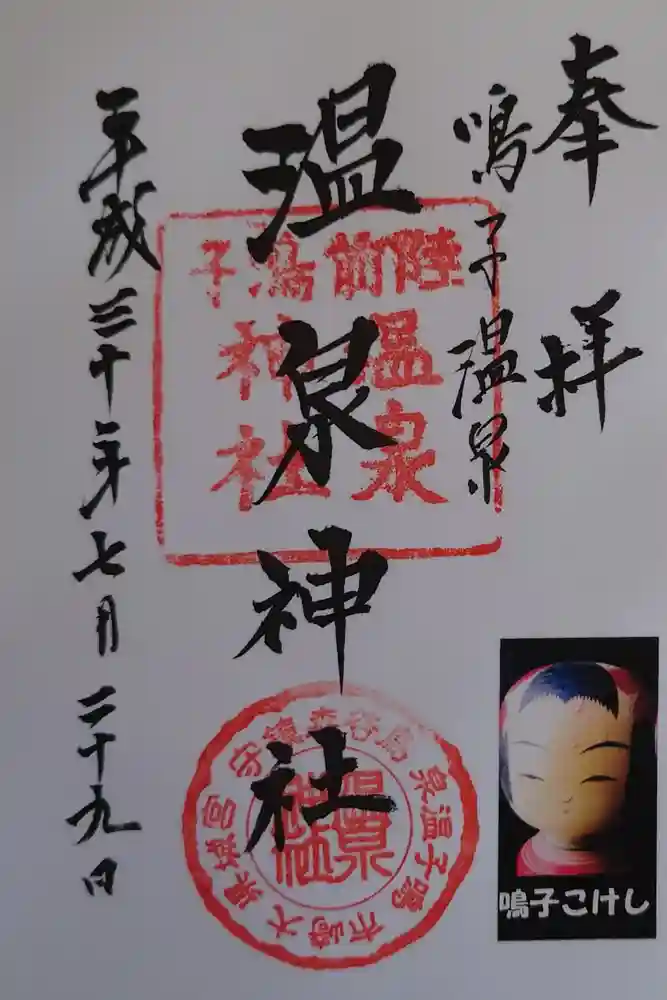 奉拝
鳴子温泉
温泉神社
平成三十年七月二十九日
陸前鳴子
温泉
神社
宮城県大崎市鳴子温泉
温泉神社
鳴子こけし